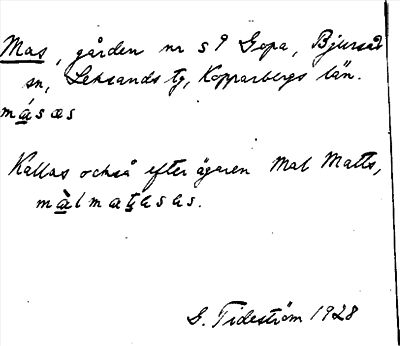 Mas, gården nr 59 Gopa, Bjursås
sn, Leksands tg, Kopparbergs län.
másæs
Kallas också efter ägaren Mal Matts,
màlmatsasas.
G. Tideström 1928